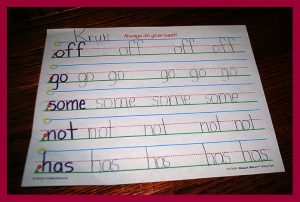 Always do your best!
off off off off
go go go go go go
some some some some
not not not not not
has has has has has